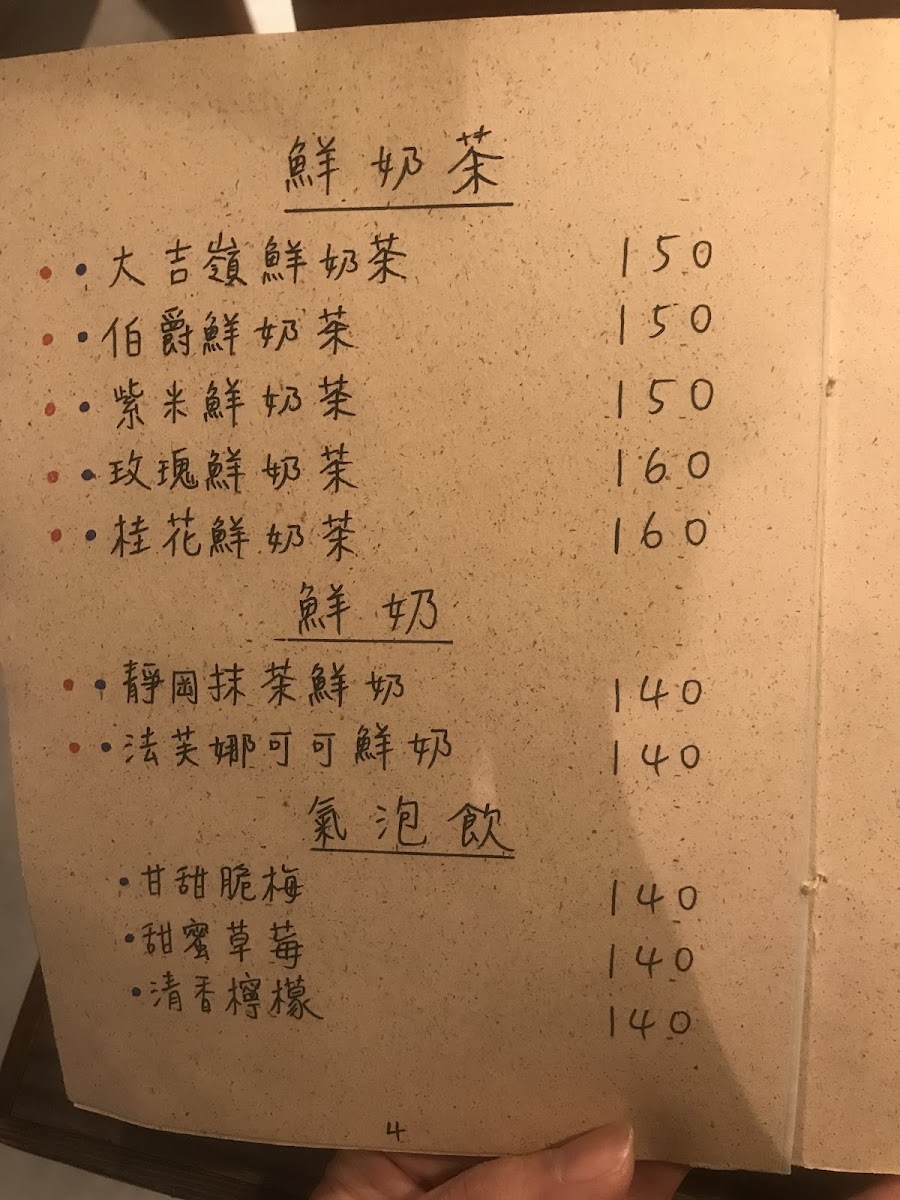 鮮奶茶
大吉嶺鮮奶茶 150
伯爵鮮奶茶 150
紫米鮮奶茶 150
玫瑰鮮奶茶 160
桂花鮮奶茶 160
鮮奶
靜岡抹茶鮮奶 140
法芙娜可可鮮奶 140
氣泡飲
甘甜脆梅 140
甜蜜草莓 140
清香檸檬 140
4